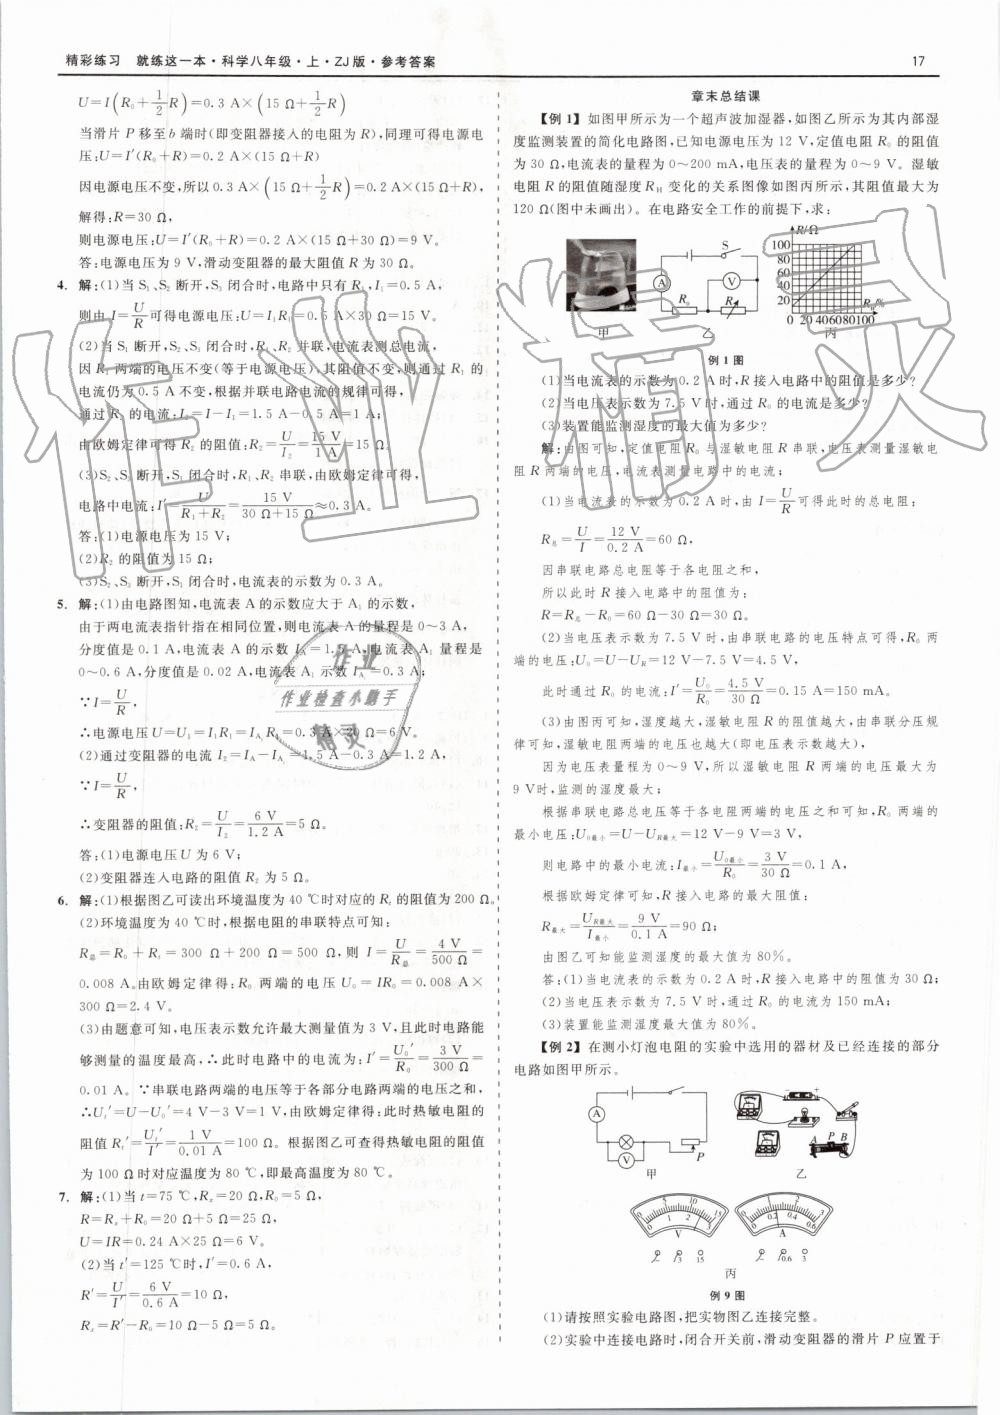 精彩练习 就练这一本·科学八年级·上·ZJ版·参考答案
17
U=I(R₀+½R)=0.3 A×(15 Ω+½R)
当滑片 P 移至 b 端时(即变阻器接入的电阻为 R),同理可得电源电
压:U=I′(R₀+R)=0.2 A×(15 Ω+R)
因电源电压不变,所以 0.3 A×(15 Ω+½R)=0.2 A×(15 Ω+R),
解得:R=30 Ω,
则电源电压:U=I′(R₀+R)=0.2 A×(15 Ω+30 Ω)=9 V。
答:电源电压为 9 V,滑动变阻器的最大阻值 R 为 30 Ω。
4. 解:(1)当 S₁、S₂ 断开,S₃ 闭合时,电路中只有 R₁,I₁=0.5 A,
则由 I=U/R 可得电源电压:U=I₁R₁=0.5 A×30 Ω=15 V。
(2)当 S₁ 断开,S₂、S₃ 闭合时,R₁、R₂ 并联,电流表测总电流,
因 R₁ 两端的电压不变(等于电源电压),其阻值不变,则通过 R₁ 的
电流仍为 0.5 A 不变,根据并联电路电流的规律可得,
通过 R₂ 的电流:I₂=I-I₁=1.5 A-0.5 A=1 A,
由欧姆定律可得 R₂ 的阻值:R₂=U/I₂=15 V/1 A=15 Ω。
(3)S₂、S₃ 断开,S₁ 闭合时,R₁、R₂ 串联,由欧姆定律可得,
电路中电流:I′=U/(R₁+R₂)=15 V/(30 Ω+15 Ω)≈0.3 A。
答:(1)电源电压为 15 V;
(2)R₂ 的阻值为 15 Ω;
(3)S₂、S₃ 断开,S₁ 闭合时,电流表的示数为 0.3 A。
5. 解:(1)由电路图知,电流表 A 的示数应大于 A₁ 的示数,
由于两电流表指针指在相同位置,则电流表 A 的量程是 0~3 A,
分度值是 0.1 A,电流表 A 的示数 Iₐ=1.5 A,电流表 A₁ 量程是
0~0.6 A,分度值是 0.02 A,电流表 A₁ 示数 Iₐ₁=0.3 A,
∵I=U/R,
∴电源电压U=U₁=I₁R₁=Iₐ₁R₁=0.3 A×20 Ω=6 V。
(2)通过变阻器的电流 I₂=Iₐ-Iₐ₁=1.5 A-0.3 A=1.2 A,
∵I=U/R,
∴变阻器的阻值:R₂=U/I₂=6 V/1.2 A=5 Ω。
答:(1)电源电压 U 为 6 V;
(2)变阻器连入电路的阻值 R₂ 为 5 Ω。
6. 解:(1)根据图乙可读出环境温度为 40 ℃时对应的 Rₜ 的阻值为 200 Ω。
(2)环境温度为 40 ℃时,根据电阻的串联特点可知:
R总=R₀+Rₜ=300 Ω+200 Ω=500 Ω,则 I=U/R总=4 V/500 Ω=
0.008 A。由欧姆定律得:R₀ 两端的电压 U₀=IR₀=0.008 A×
300 Ω=2.4 V。
(3)由题意可知,电压表示数允许最大测量值为 3 V,且此时电路能
够测量的温度最高,∴此时电路中的电流为:I′=U₀′/R₀=3 V/300 Ω=
0.01 A。∵串联电路两端的电压等于各部分电路两端的电压之和,
∴Uₜ′=U-U₀′=4 V-3 V=1 V,由欧姆定律得:此时热敏电阻的
阻值 Rₜ′=Uₜ′/I′=1 V/0.01 A=100 Ω。根据图乙可查得热敏电阻的阻值
为 100 Ω 时对应温度为 80 ℃,即最高温度为 80 ℃。
7. 解:(1)当 t=75 ℃,Rₓ=20 Ω,R₀=5 Ω,
R=Rₓ+R₀=20 Ω+5 Ω=25 Ω,
U=IR=0.24 A×25 Ω=6 V。
(2)当 t′=125 ℃时,I′=0.6 A,
R′=U/I′=6 V/0.6 A=10 Ω,
Rₓ=R′-R₀=10 Ω-5 Ω=5 Ω。
章末总结课
【例 1】 如图甲所示为一个超声波加湿器,如图乙所示为其内部湿
度监测装置的简化电路图,已知电源电压为 12 V,定值电阻 R₀ 的阻值
为 30 Ω,电流表的量程为 0~200 mA,电压表的量程为 0~9 V。湿敏
电阻 R 的阻值随湿度 Rₕ 变化的关系图像如图丙所示,其阻值最大为
120 Ω(图中未画出)。在电路安全工作的前提下,求:
S
A
V
R₀
R
R/Ω
100
80
60
40
20
0 20 40 60 80 100
甲 乙 丙
例 1 图
(1)当电流表的示数为 0.2 A时,R 接入电路中的阻值是多少?
(2)当电压表示数为 7.5 V时,通过 R₀ 的电流是多少?
(3)装置能监测湿度的最大值为多少?
解:由图可知,定值电阻 R₀ 与湿敏电阻 R 串联,电压表测量湿敏电
阻 R 两端的电压,电流表测量电路中的电流;
(1)当电流表的示数为 0.2 A时,由 I=U/R 可得此时的总电阻:
R总=U/I=12 V/0.2 A=60 Ω,
因串联电路总电阻等于各电阻之和,
所以此时 R 接入电路中的阻值为:
R=R总-R₀=60 Ω-30 Ω=30 Ω。
(2)当电压表示数为 7.5 V 时,由串联电路的电压特点可得,R₀ 两
端的电压:U₀=U-Uᵣ=12 V-7.5 V=4.5 V,
此时通过 R₀ 的电流:I′=U₀/R₀=4.5 V/30 Ω=0.15 A=150 mA。
(3)由图丙可知,湿度越大,湿敏电阻 R 的阻值越大,由串联分压规
律可知,湿敏电阻两端的电压也越大(即电压表示数越大),
因为电压表量程为 0~9 V,所以湿敏电阻 R 两端的电压最大为
9 V时,监测的湿度最大;
根据串联电路总电压等于各电阻两端的电压之和可知,R₀ 两端的
最小电压:U₀最小=U-Uᵣ最大=12 V-9 V=3 V,
则电路中的最小电流:I最小=U₀最小/R₀=3 V/30 Ω=0.1 A,
根据欧姆定律可知,R 接入电路中的最大阻值:
R最大=Uᵣ最大/I最小=9 V/0.1 A=90 Ω;
由图乙可知能监测湿度的最大值为 80%。
答:(1)当电流表的示数为 0.2 A时,R 接入电路中的阻值为 30 Ω;
(2)当电压表示数为 7.5 V时,通过 R₀ 的电流为 150 mA;
(3)装置能监测湿度最大值为 80%。
【例 2】 在测小灯泡电阻的实验中选用的器材及已经连接的部分
电路如图甲所示。
A
V
P
甲
A P B
乙
0 5 10 15
0 1 2 3
V
- 3 15
0 1 2 3
0 0.2 0.4 0.6
A
- 0.6 3
丙
例 9 图
(1)请按照实验电路图,把实物图乙连接完整。
(2)实验中连接电路时,闭合开关前,滑动变阻器的滑片 P 应置于
作业精灵
作业
作业检查小助手
精灵